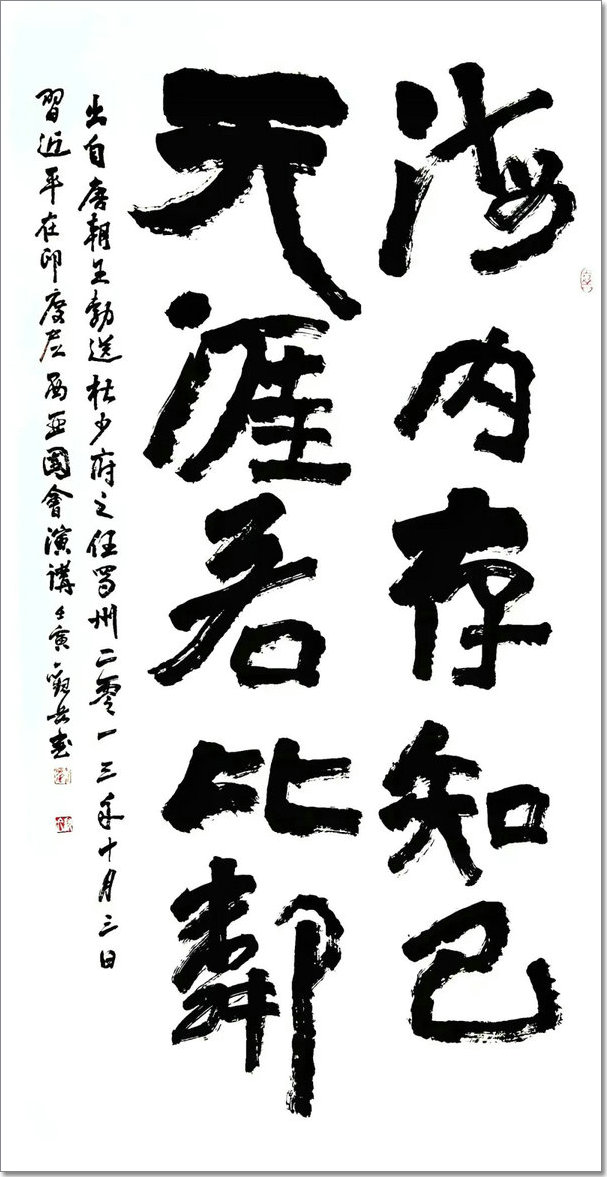 海内存知己
天涯若比鄰
出自唐朝王勃送杜少府之任蜀州二零一三年十月三日
習近平在印度尼西亞國會演講壬寅觀岳書